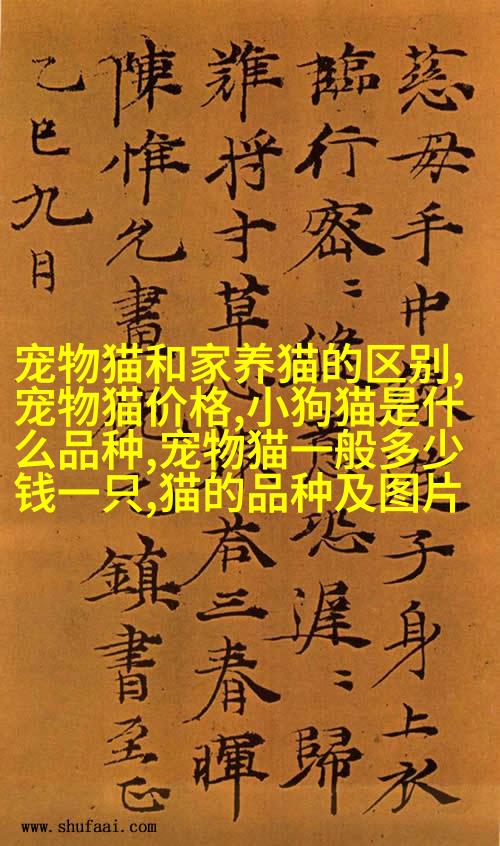 慈母手中子身上衣
臨行密〻縫恐遲〻歸
難将寸草心荅三春暉
陳惟允書鎮書至正
乙巳九月
宠物猫和家养猫的区别,
宠物猫价格,小狗猫是什
么品种,宠物猫一般多少
钱一只,猫的品种及图片
www.shufaai.com